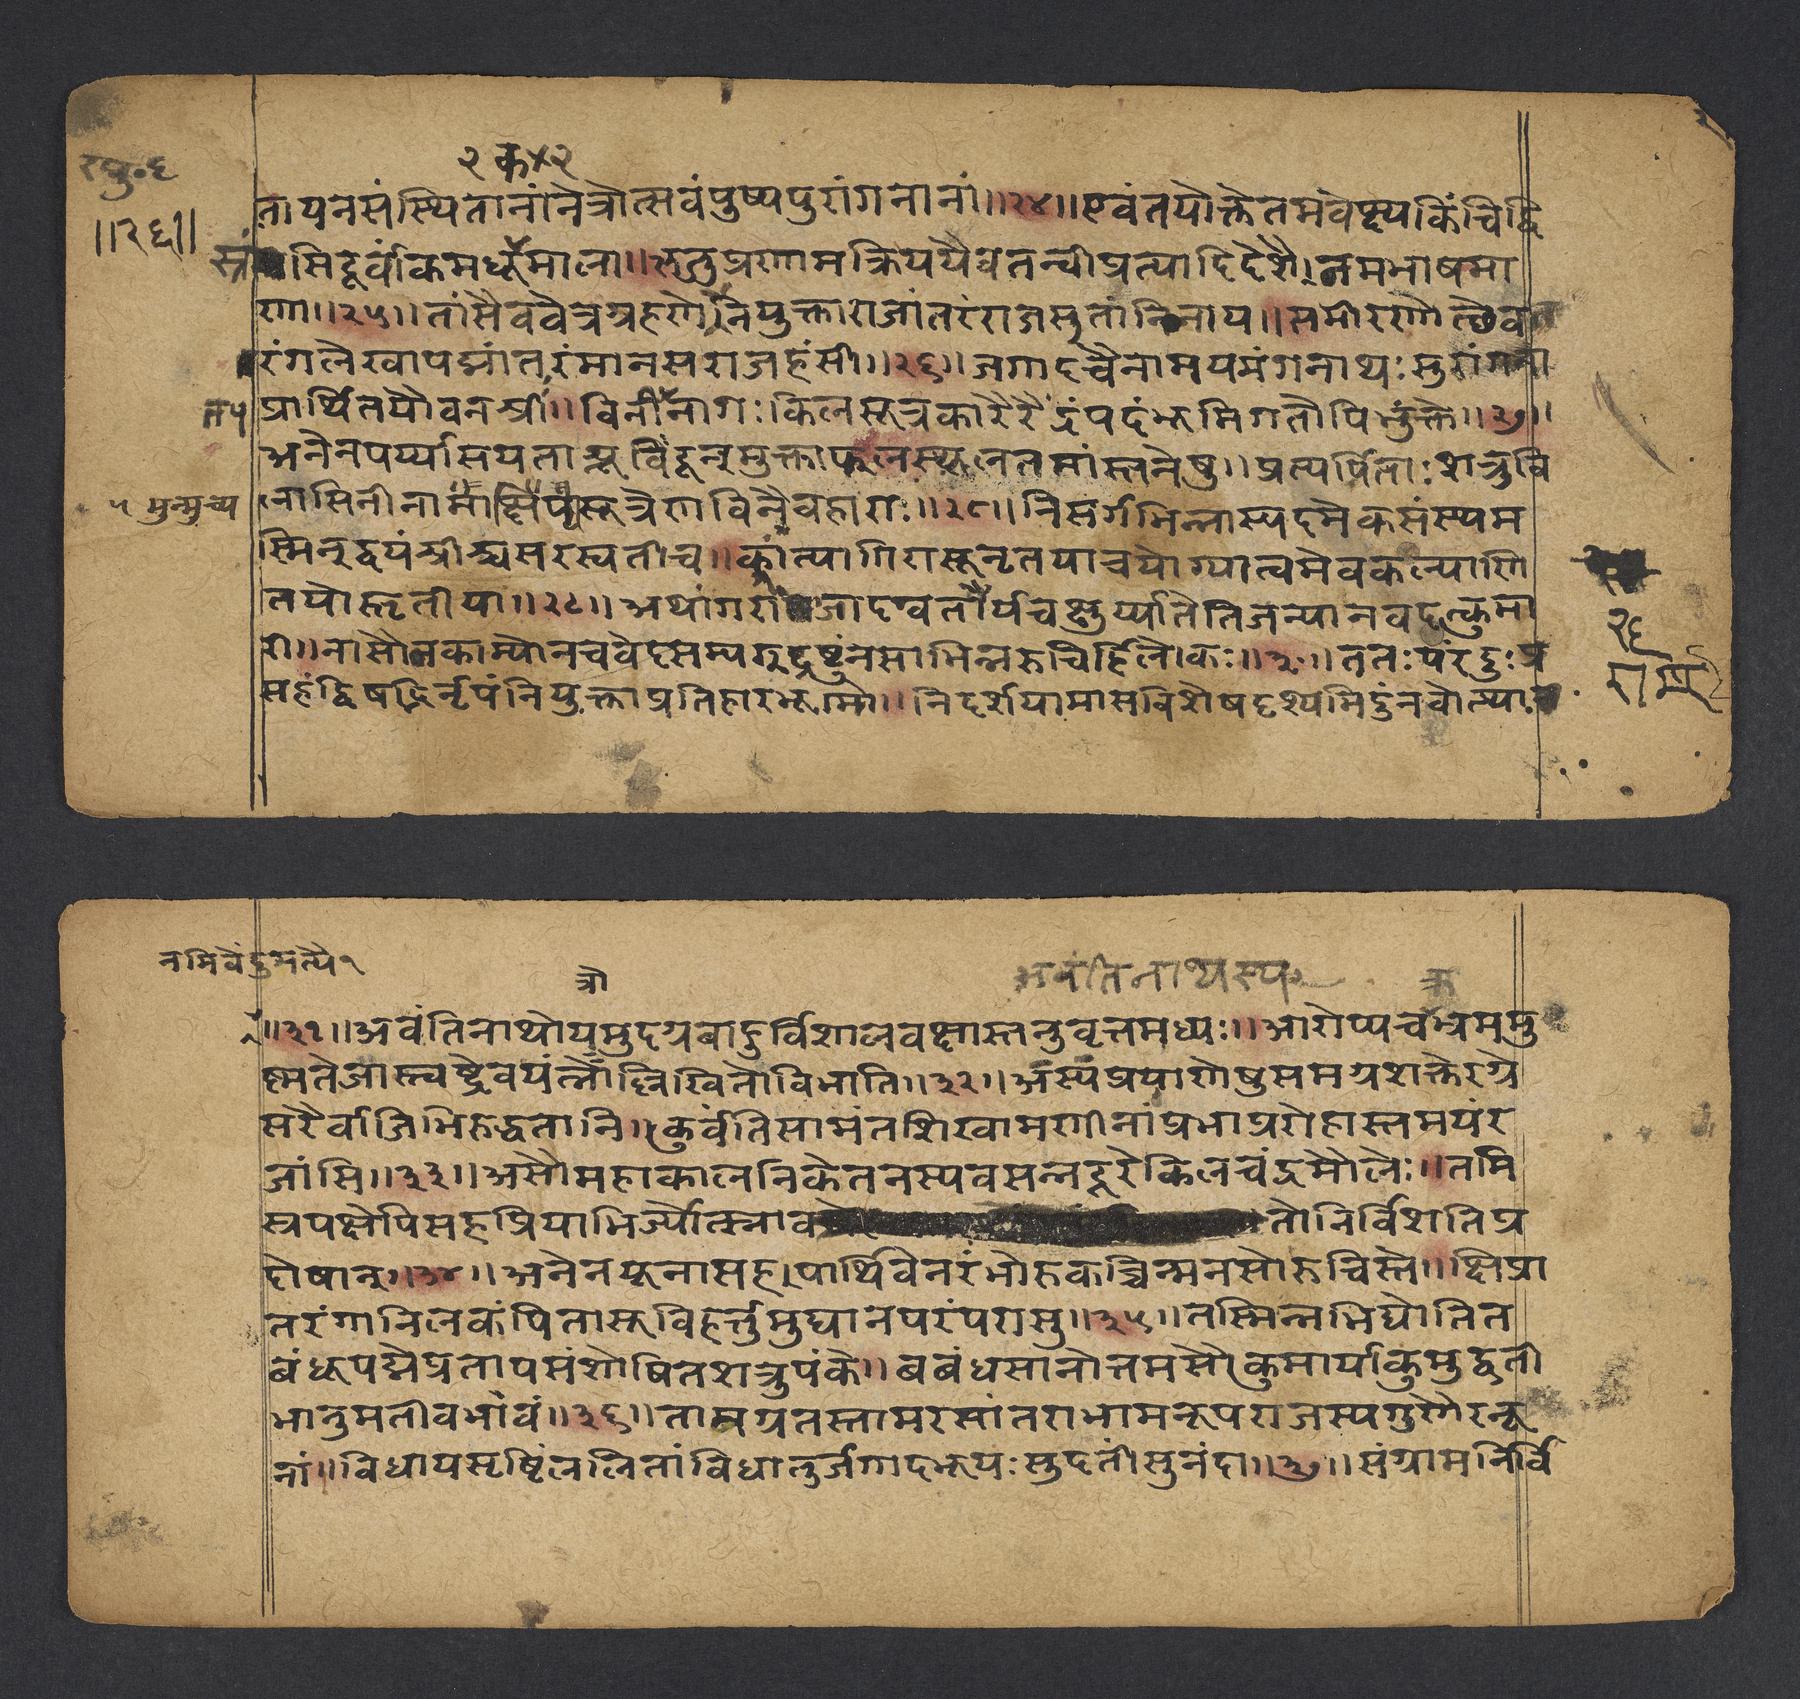 रघु॰६
॥२६॥
२ क × २
तायनसंस्थितानांनेत्रोत्सवंपुष्पपुरांगनानां॥२४॥एवंतयोक्तेतमवेक्ष्यकिंचिद्वि
स्रंसिदूर्वांकमधूकमाला॥ऋजुप्रणामक्रिययैवतन्वीप्रत्यादिदेशैनमभाषमा
णा॥२५॥तांसैववेत्रग्रहणेनियुक्ताराजांतरंराजसुतांनिनाय॥समीरणोत्थेवत
रंगलेखापद्मांतरंमानसराजहंसीं॥२६॥जगादचैनामयमंगनाथःसुरांगना
प्रार्थितयौवनश्रीः॥विनीतनागःकिलसूत्रकारैरैंद्रंपदंभूमिगतोपिभुंक्ते॥२७॥
अनेनपर्य्यासयताश्रुबिंदून्मुक्ताफलस्थूलतमांस्तनेषु॥प्रत्यर्पिताःशत्रुवि
५ मुन्मुच्य
लासिनीनामाक्षिप्यसूत्रेणविनैवहाराः॥२८॥निसर्गभिन्नास्पदमेकसंस्थम
स्मिन्द्वयंश्रीश्चसरस्वतीच॥कांत्यागिरासूनृतयाचयोग्यात्वमेवकल्याणि
तयोस्तृतीया॥२९॥अथांगराजादवतार्यचक्षुर्य्यातेतिजन्यानवदत्कुमा
२६
राम
री॥नासौनकाम्योनचवेदसम्यग्द्रष्टुंनसाभिन्नरुचिर्हिलोकः॥३०॥ततःपरंदुःप्र
सहंद्विषद्भिर्नृपंनियुक्ताप्रतिहारभूमौ॥निदर्शयामासविशेषदृश्यमिंदुंनवोत्थान
नमिवेंदुमत्यै१
त्रौ
अवंतिनाथस्य
॥३१॥अवंतिनाथोयमुदग्रबाहुर्विशालवक्षास्तनुवृत्तमध्यः॥आरोप्यचक्रभ्रममु
ष्णतेजास्त्वष्ट्रेवयंत्रोल्लिखितोविभाति॥३२॥अस्यप्रयाणेषुसमग्रशक्तेरग्रे
सरैर्वाजिभिरुद्धतानि॥कुर्वंतिसामंतशिखामणीनांप्रभाप्ररोहास्तमयंर
जांसि॥३३॥असौमहाकालनिकेतनस्यवसन्नदूरेकिलचंद्रमौलेः॥तमि
स्रपक्षेपिसहप्रियाभिर्ज्योत्स्नाव तोनिर्विशतिप्र
दोषान्॥३४॥अनेनयूनासहपार्थिवेनरंभोरुकच्चिन्मनसोरुचिस्ते॥क्षिप्रा
तरंगानिलकंपितासुविहर्त्तुमुद्यानपरंपरासु॥३५॥तस्मिन्नभिद्योतित
बंधुपद्मेप्रतापसंशोषितशत्रुपंके॥बबंधसानोत्तमसौकुमार्याकुमुद्वती
भानुमतीवभावं॥३६॥तामग्रतस्तामरसांतराभामनूपराजस्यगुणैरनू
नां॥विधायसृष्टिंललितांविधातुर्जगादभूयःसुदतींसुनंदा॥३७॥संग्रामनिर्वि